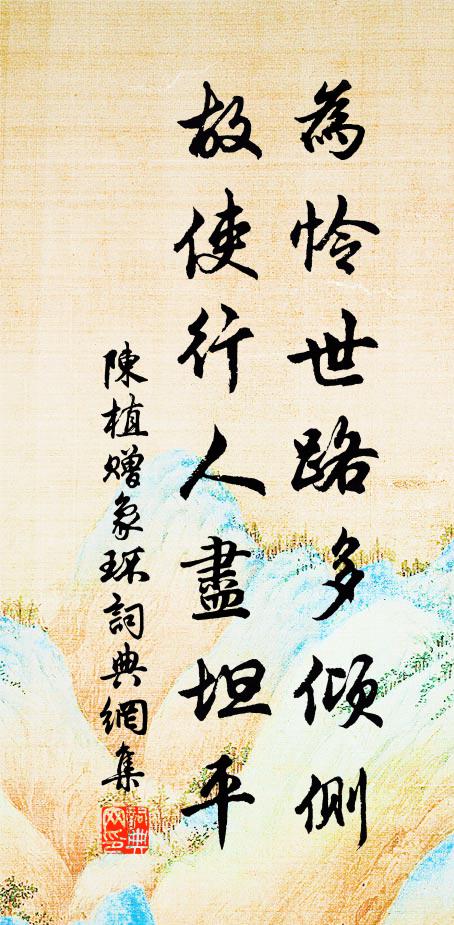 為怜世路多傾側
故使行人盡坦平
陳植贈象环詞典網集
詞典網印